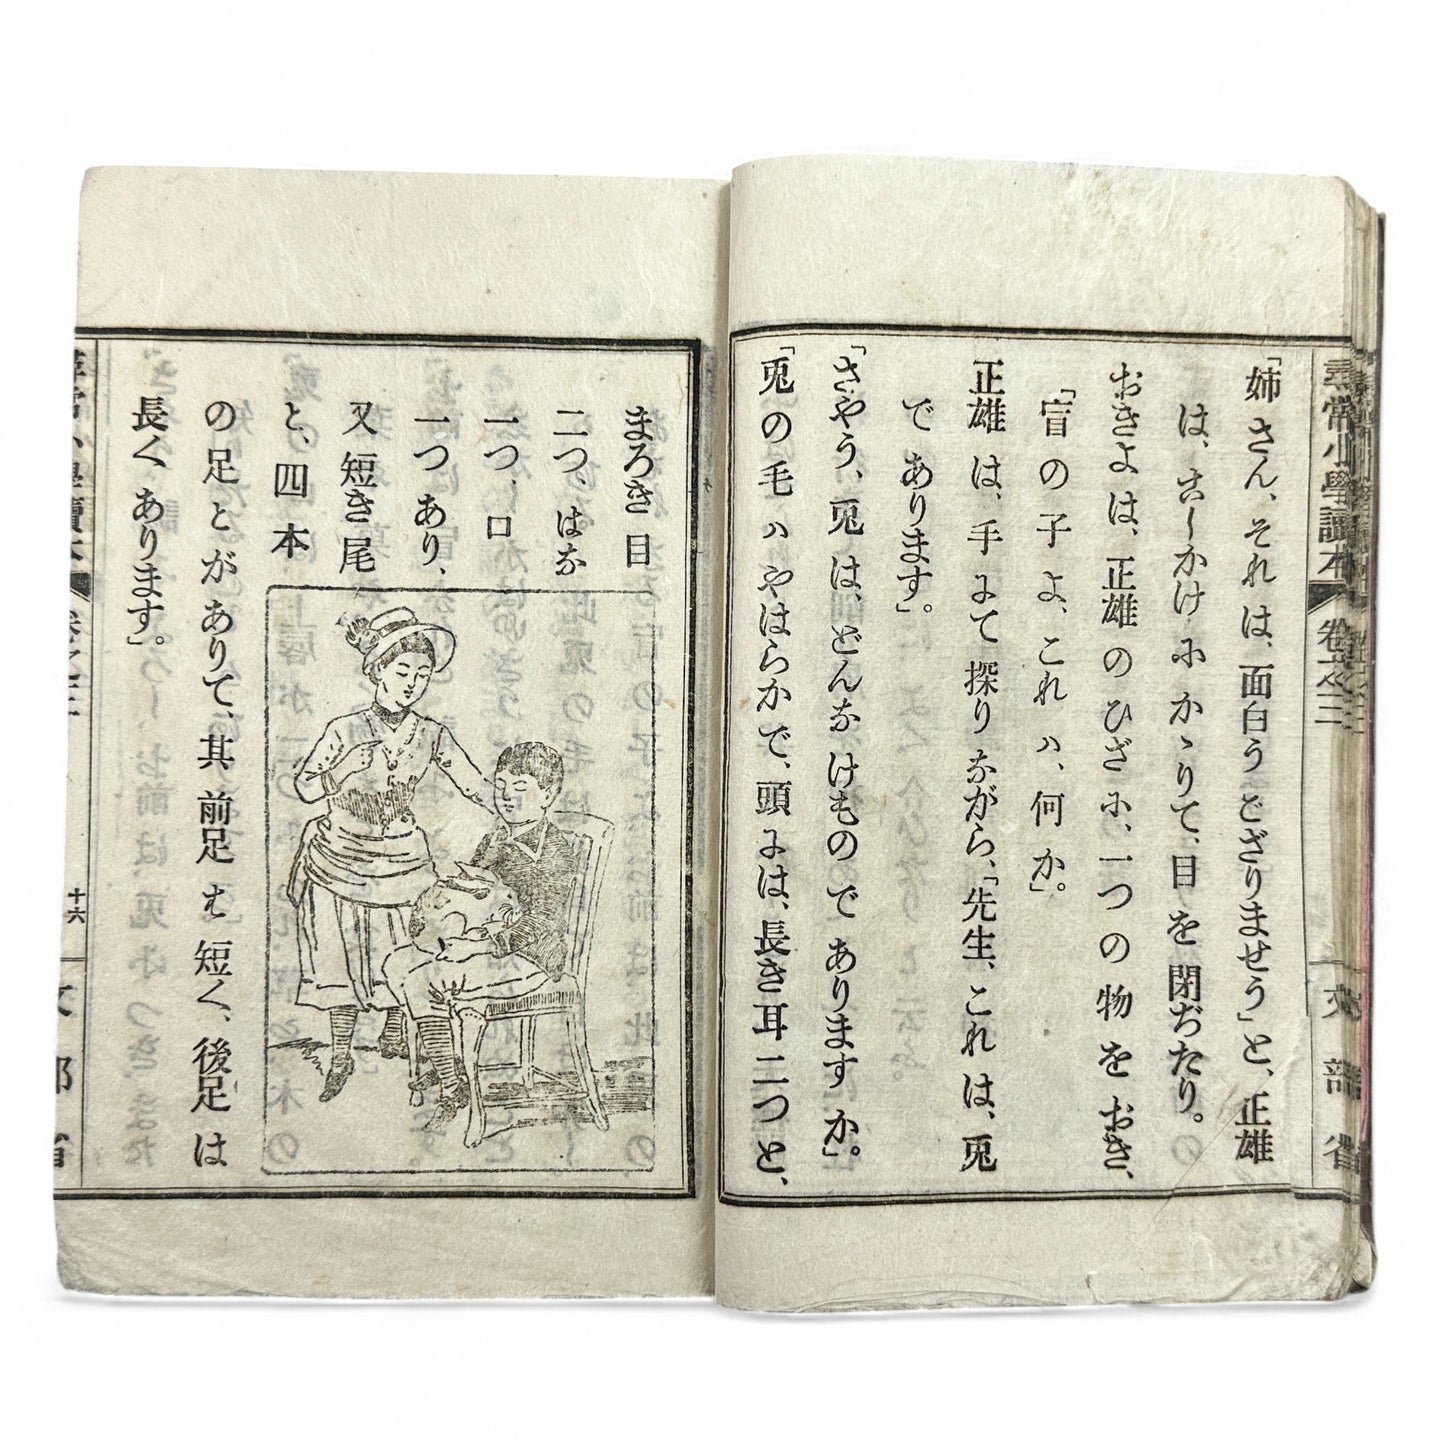 「姉さん、それは、面白うござりませう」と、正雄
は、こしかけにかゝりて、目を閉ぢたり。
おきよは、正雄のひざに、一つの物をおき、
「盲の子よ、これハ、何か」。
正雄は、手にて探りながら、「先生、これは、兎
であります」。
「さやう、兎は、どんなけものでありますか」。
「兎の毛ハやはらかで、頭には、長き耳二つと、
まろき目
二つ、はな
一つ、口
一つあり、
又短き尾
と、四本
の足とがありて、其前足も短く、後足は
長くあります」。
尋常小學讀本
卷之二
十六
文部省
尋常小學讀本
卷之二
文部省